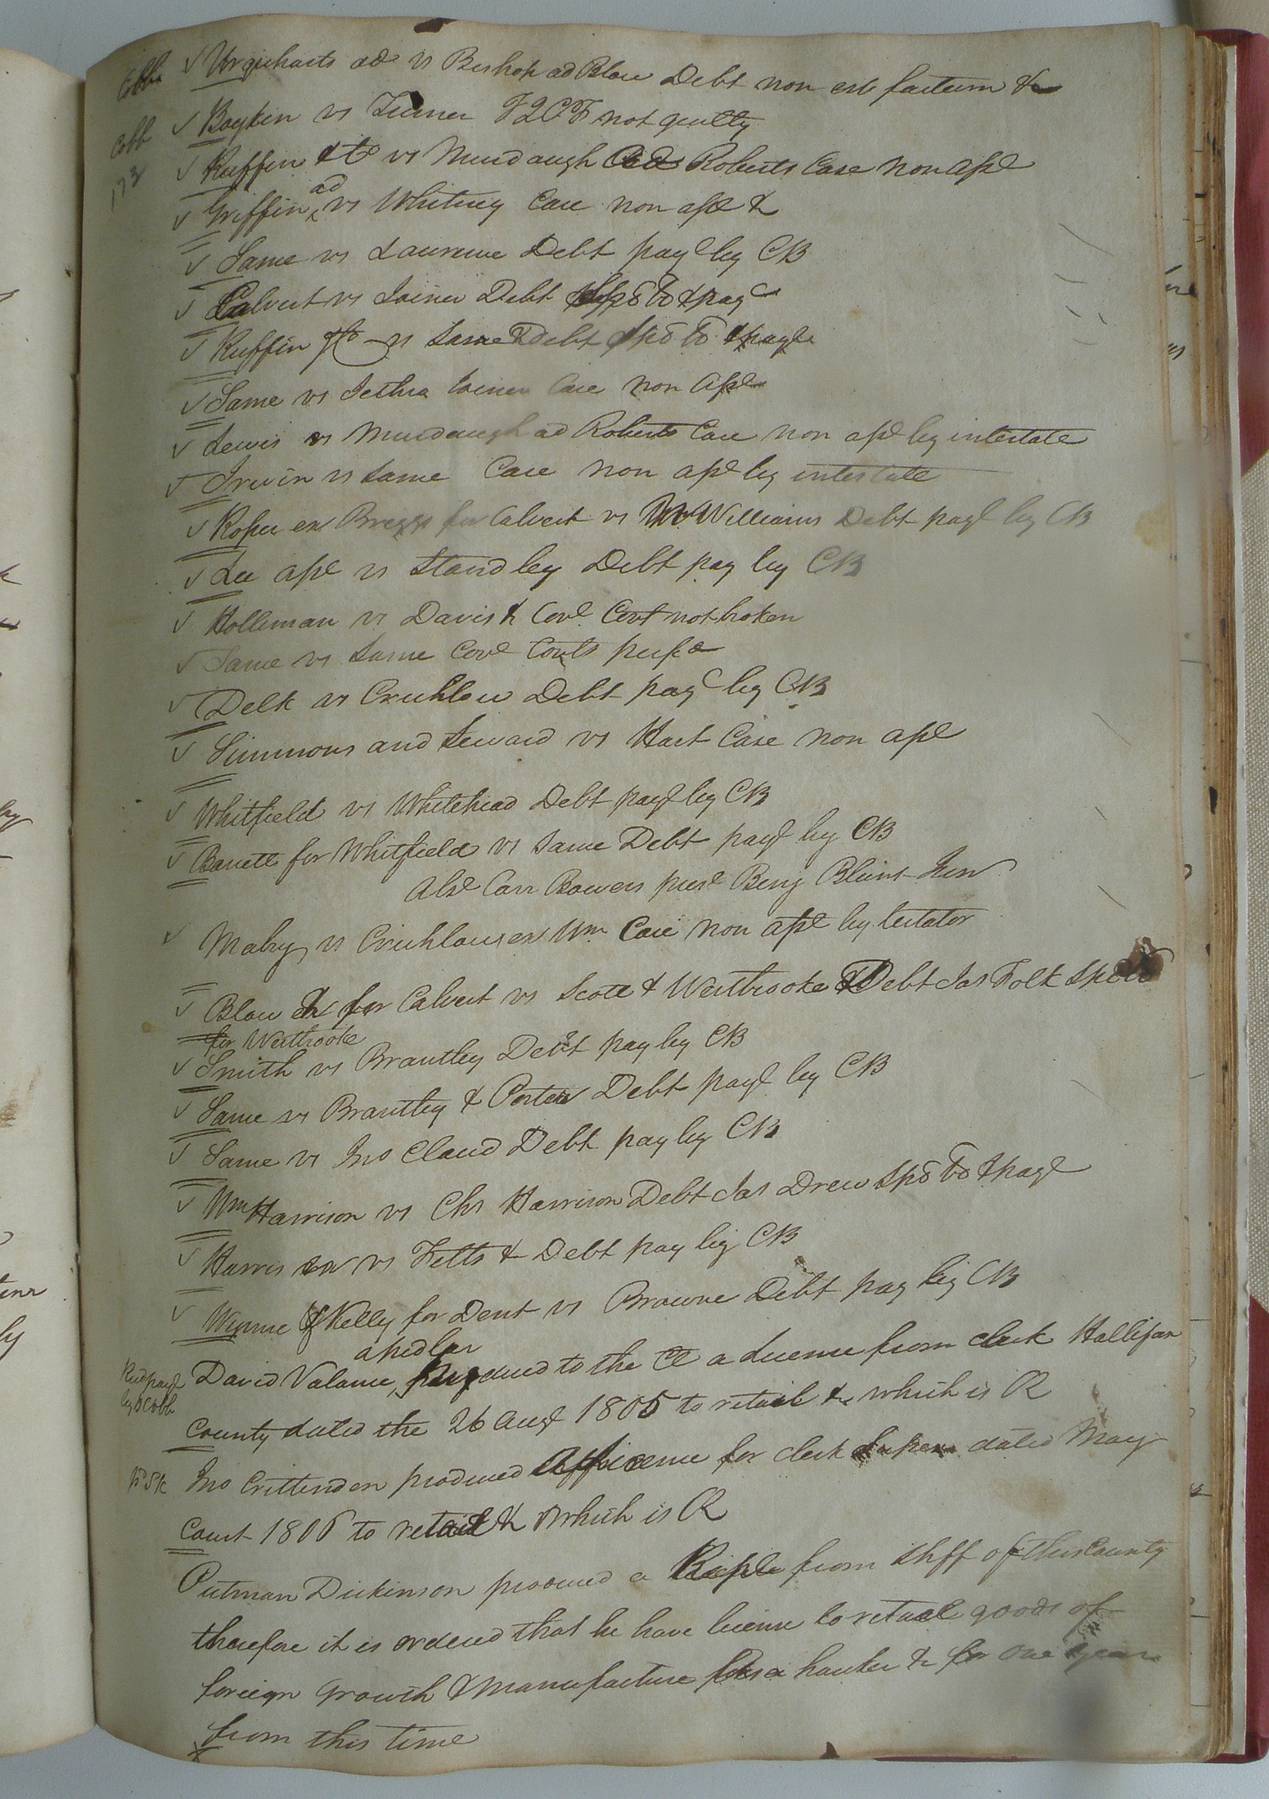 Cobb ✓ Urquharts ads vs Bishop ad Blow Debt non est factum &
Cobb ✓ Boykin vs Turner F2CF not guilty
173 ✓ Ruffin & Co vs Murdaugh ad Roberts Case non aſst
✓ Griffin ad vs Whitney Case non aſst &
✓ Same vs Laurence Debt payt by CB
✓ Calvert vs Joiner Debt spō bō & payt
✓ Ruffin & Co vs Same Debt spō bō & payt
✓ Same vs Jethra Joiner Case non aſst
✓ Lewis vs Murdaugh ad Roberts Case non aſst by intestate
✓ Irwin vs Same Case non aſst by intestate
✓ Roper ex Briggs for Calvert vs Williams Debt payt by CB
✓ Lee aſse vs Standley Debt pay by CB
✓ Holleman vs Davis & Covt Covt not broken
✓ Same vs Same Covt Covts perfd
✓ Delk vs Cruchlow Debt payt by CB
✓ Simmons and Seward vs Hart Case non aſst
✓ Whitfield vs Whitehead Debt payt by CB
✓ Barrett for Whitfield vs Same Debt payt by CB
Abst Carr Bowers prest Benj Blunt Junr
✓ Mabry vs Cruchlow ex Wm Case non aſst by testator
✓ Blow Ex for Calvert vs Scott & Westbrooke Debt Jas Folk
for Westbrooke
✓ Smith vs Brantley Debt pay by CB
✓ Same vs Brantley & Porter Debt payt by CB
✓ Same vs Jno Claud Debt pay by CB
✓ Wm Harrison vs Chs Harrison Debt Jas Drew spō bō & payt
✓ Harris ex vs Felts & Debt pay by CB
✓ Wynne & Kelly for Dent vs Browne Debt pay by CB
a pedlar
David Valance, produced to the Ct a license from clerk Hallifax
County dated the 26 Augt 1805 to retail & which is R
Jno Crittenden produced a license for clerk dated May
Court 1806 to retail & which is R
Putman Dickinson produced a from Shff of this County
therefore it is ordered that he have license to retail goods of
foreign growth & manufacture as a hawker & for one year
from this time